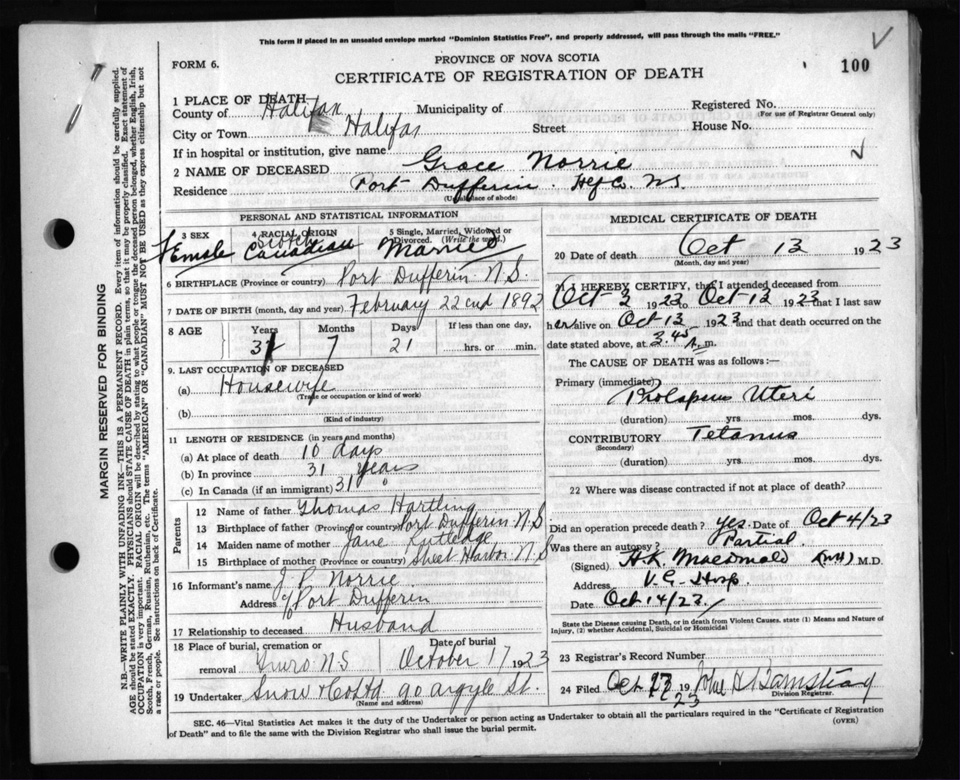 This form if placed in an unsealed envelope marked "Dominion Statistics Free", and properly addressed, will pass through the mails "FREE."
FORM 6.
PROVINCE OF NOVA SCOTIA
CERTIFICATE OF REGISTRATION OF DEATH
100
1 PLACE OF DEATH
County of Halifax Municipality of Registered No.
(For use of Registrar General only)
City or Town Halifax Street House No.
If in hospital or institution, give name
2 NAME OF DECEASED Grace Norrie
Residence Port Dufferin. Hfx Co. N.S.
(Usual place of abode)
PERSONAL AND STATISTICAL INFORMATION
3 SEX 4 RACIAL ORIGIN 5 Single, Married, Widowed or Divorced. (Write the word.)
Female Scotch Canadian Married
6 BIRTHPLACE (Province or country) Port Dufferin N.S.
7 DATE OF BIRTH (month, day and year) February 22cnd 1892
8 AGE Years Months Days If less than one day,
31 7 21 hrs. or min.
9. LAST OCCUPATION OF DECEASED
(a) Housewife
(Trade or occupation or kind of work)
(b)
(Kind of industry)
11 LENGTH OF RESIDENCE (in years and months)
(a) At place of death 10 days
(b) In province 31 years
(c) In Canada (if an immigrant) 31 "
Parents
12 Name of father Thomas Hartling
13 Birthplace of father (Province or country) Port Dufferin N.S
14 Maiden name of mother Jane Rutledge
15 Birthplace of mother (Province or country) Sheet Harbor N.S
16 Informant's name J P Norrie
Address of Port Dufferin
17 Relationship to deceased Husband
18 Place of burial, cremation or removal Truro N.S Date of burial October 17 1923
19 Undertaker Snow & Co Ltd 90 Argyle St.
(Name and address)
MEDICAL CERTIFICATE OF DEATH
20 Date of death Oct 13 1923
(Month, day and year)
21 I HEREBY CERTIFY, that I attended deceased from
Oct 3 1923 to Oct 13 1923 that I last saw
her alive on Oct 13 1923 and that death occurred on the
date stated above, at 3.45 A.m.
The CAUSE OF DEATH was as follows:—
Primary (immediate) Prolapsus Uteri
(duration) yrs. mos. dys.
CONTRIBUTORY Tetanus
(Secondary)
(duration) yrs. mos. dys.
22 Where was disease contracted if not at place of death?
Did an operation precede death? yes. Date of Oct 4/23
Was there an autopsy? Partial.
(Signed) H.K. Macdonald M.D.
Address V.G. Hosp.
Date Oct 14/23.
State the Disease causing Death, or in death from Violent Causes. state (1) Means and Nature of Injury, (2) whether Accidental, Suicidal or Homicidal
23 Registrar's Record Number
24 Filed Oct 17 1923 John H
Division Registrar.
SEC. 46—Vital Statistics Act makes it the duty of the Undertaker or person acting as Undertaker to obtain all the particulars required in the "Certificate of Registration of Death" and to file the same with the Division Registrar who shall issue the burial permit.
(OVER)
MARGIN RESERVED FOR BINDING
N.B.—WRITE PLAINLY WITH UNFADING INK—THIS IS A PERMANENT RECORD. Every item of information should be carefully supplied.
AGE should be stated EXACTLY. PHYSICIANS should STATE CAUSE OF DEATH in plain terms, so that it may be properly classified. Exact statement of
OCCUPATION is very important. RACIAL ORIGIN will be described by stating to what people or tongue the deceased person belonged, whether English, Irish,
Scotch, French, German, Russian, Ruthenian, etc. The terms "AMERICAN" OR "CANADIAN" MUST NOT BE USED as they express citizenship but not
a race or people. See instructions on back of Certificate.